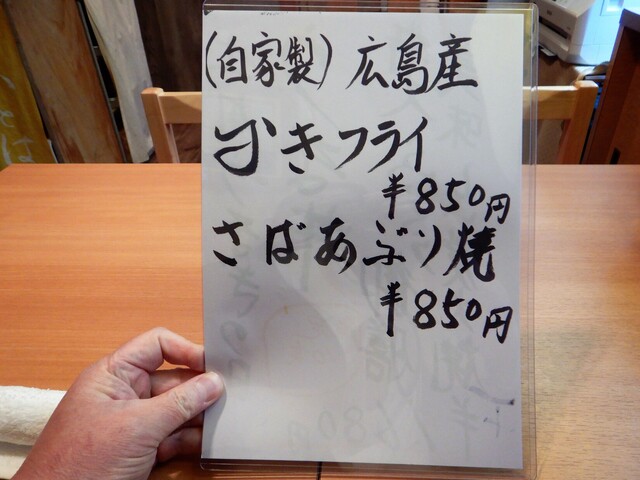 (自家製) 広島産
かきフライ
¥850円
さばあぶり焼
¥850円